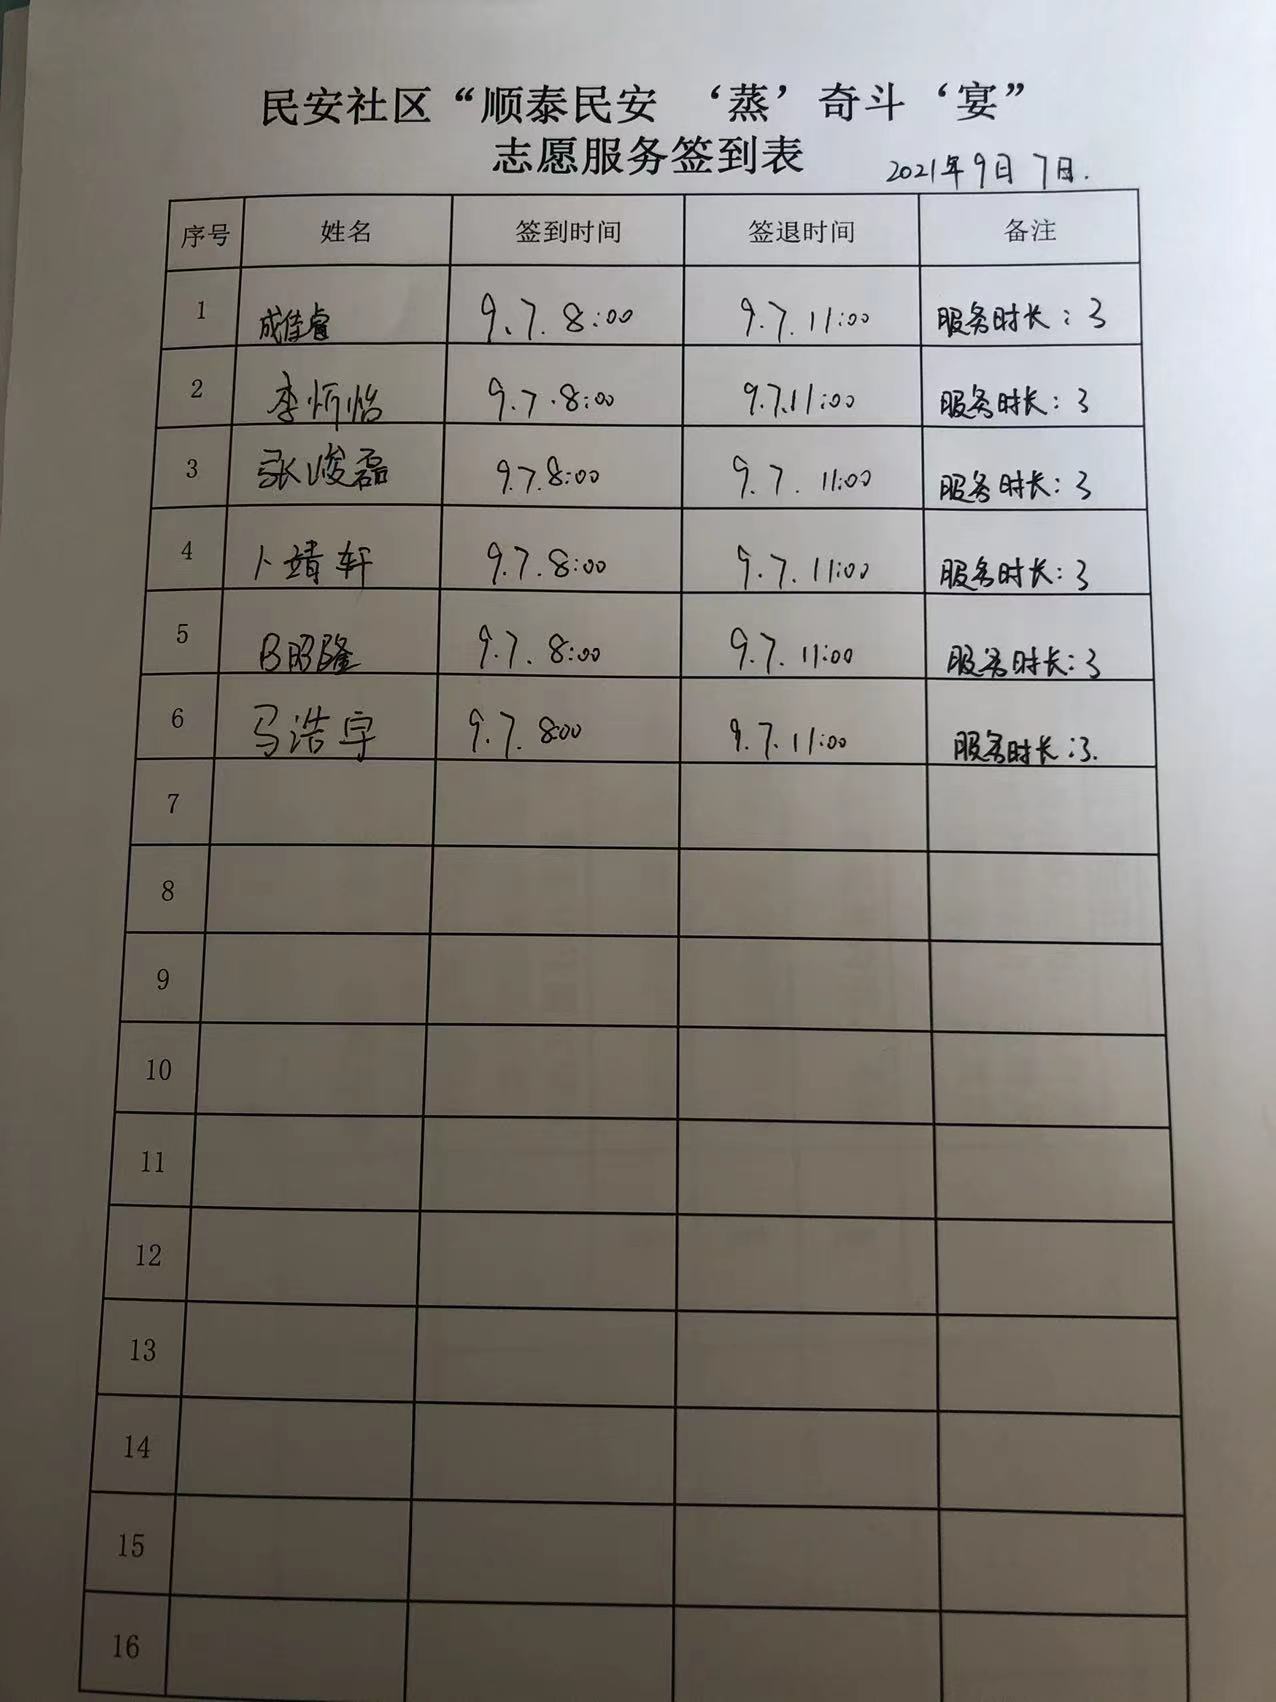 民安社区“顺泰民安 ‘蒸’奇斗‘宴”
志愿服务签到表
2021年9日7日.
序号 姓名 签到时间 签退时间 备注
1 成佳睿 9.7. 8:00 9.7.11:00 服务时长：3
2 李炘怡 9.7.8:00 9.7.11:00 服务时长：3
3 张峻磊 9.7.8:00 9.7. 11:00 服务时长：3
4 卜靖轩 9.7.8:00 9.7.11:00 服务时长：3
5 昭隆 9.7. 8:00 9.7. 11:00 服务时长：3
6 马浩宇 9.7. 8:00 9.7.11:00 服务时长：3.
7
8
9
10
11
12
13
14
15
16